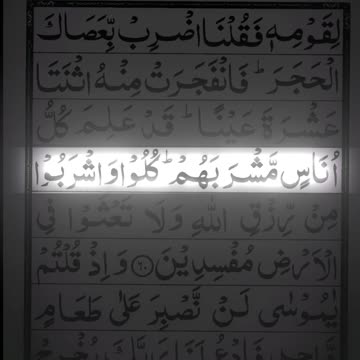 لِقَوْمِهٖ فَقُلْنَا اضْرِبْ بِّعَصَاكَ
الْحَجَرَ ؕ فَانْفَجَرَتْ مِنْهُ اثْنَتَا
عَشْرَةَ عَيْنًا ؕ قَدْ عَلِمَ كُلُّ
اُنَاسٍ مَّشْرَبَهُمْ ؕ كُلُوْا وَاشْرَبُوْا
مِنْ رِّزْقِ اللّٰهِ وَلَا تَعْثَوْا فِی
الْاَرْضِ مُفْسِدِيْنَ ﴿۶۰﴾ وَاِذْ قُلْتُمْ
يٰمُوْسٰى لَنْ نَّصْبِرَ عَلٰى طَعَامٍ